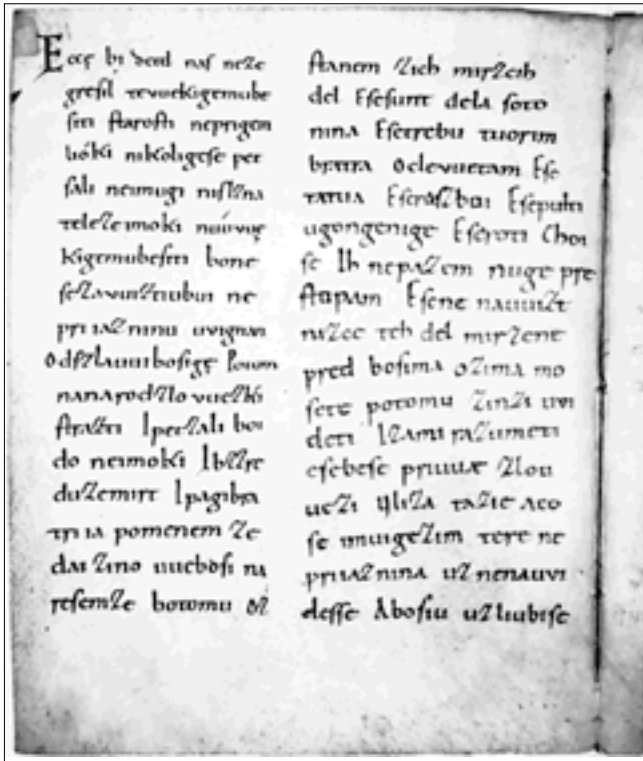 Ecce bi detd naſ neze
greſil tevuekigemube
ſiti ſtaroſti neprigem
lióki nikoligeſe pet
ſali neimugi niſlzna
teleze imoki nuúvuę
kigemubeſiti bone
ſezavuiztiubui ne
priiazninu uvignan
Odſzlauuiboſigę Potom
nanarodzlovuezki
ſtrazti Ipetzali boi
do neimoki Ibzzre
duzemirt Ipagibra
triia pomenem ze
dai zino uuebóſi na
reſemze botomu oz
ſtanem zich mirzcih
del Eſeſunt dela ſoto
nina Eſetrebu tuorim
bratra Oclevuetam Eſe
tatua Eſeroſboi Eſepulti
ugongenige Eſeroti Choi
ſe Ih nepazem nuge pre
ſtopam Eſene nauuizt
nizce teh del mirzene
pred boſima ozima mo
ſete potomu zinzi uvi
deti Izami razumeti
eſebeſe priuuæ zlou
uezi Uliza tazie aco
ſe imuigezim tere ne
priiaznina uznenauvi
deſſe Aboſiu uzliubiſe